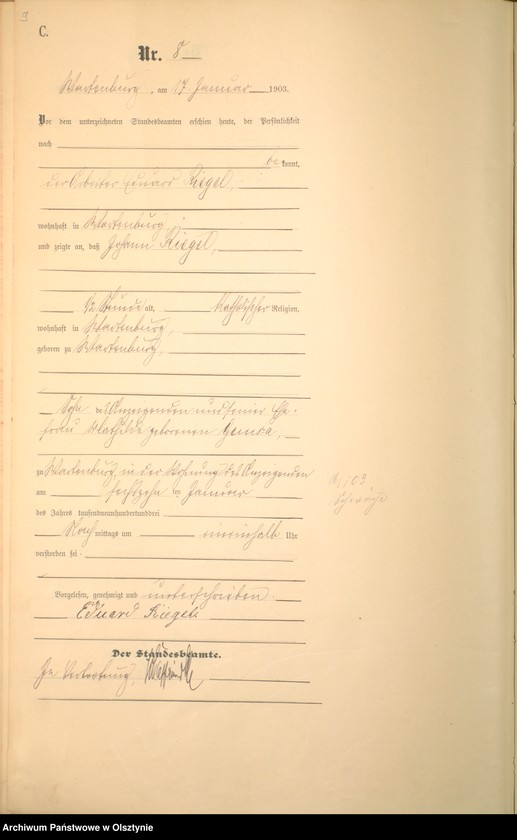 9
C.
Nr. 8
Wartenburg, am 17 Januar 1903.
Vor dem unterzeichneten Standesbeamten erschien heute, der Persönlichkeit
nach
be kannt,
der Arbeiter Eduard Riegel,
wohnhaft in Wartenburg,
und zeigte an, daß Johann Riegel,
1/2 Stunde alt, katholischer Religion,
wohnhaft in Wartenburg,
geboren zu Wartenburg,
Sohn des Anzeigenden und seiner Ehe-
frau Mathilde geborenen
zu Wartenburg, in der Wohnung des Anzeigenden
am sechzehn ten Januar
des Jahres tausendneunhundertunddrei
Nach mittags um eineinhalb Uhr
verstorben sei.
Vorgelesen, genehmigt und unterschrieben.
Eduard Riegel.
Der Standesbeamte.
In Vertretung.
Archiwum Państwowe w Olsztynie